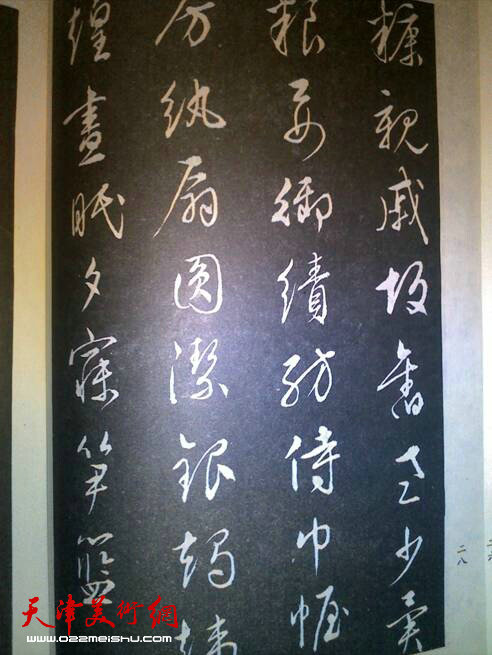 糠親戚故舊老少異
糧妾御績紡侍巾帷
房紈扇圓潔銀燭煒
煌晝眠夕寐笋籃
二八
天津美術網
www.022meishu.com